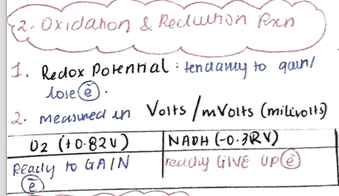 2. Oxidation & Reduction Rxn
1. Redox Potential : tendancy to gain/
lose ē.
2. measured in Volts/mVolts (milivolts)
O2 (+0.82V) NADH (-0.32V)
Ready to GAIN ready GIVE UP ē
ē